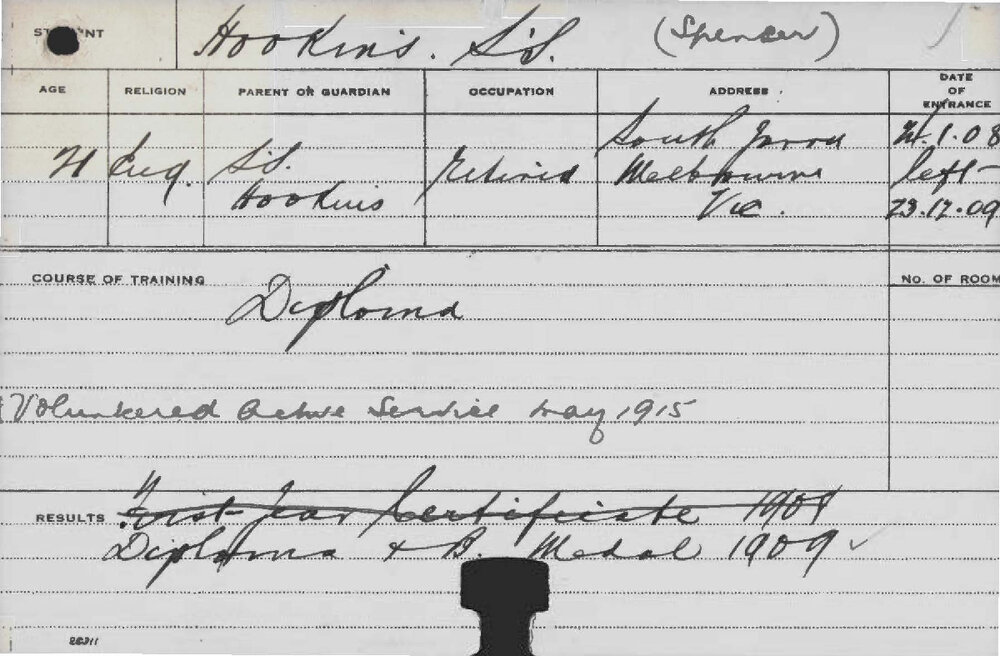 STUDENT Hookins. S.S. (Spencer)
AGE RELIGION PARENT OR GUARDIAN OCCUPATION ADDRESS DATE OF ENTRANCE
21 Eng. S.S. Hookins Retired South Yarra Melbourne Vic. 24.1.08 left 23.12.09
COURSE OF TRAINING Diploma
No. OF ROOM
Volunteered Active Service May 1915
RESULTS First Year Certificate 1908
Diploma & B. Medal 1909 ✓